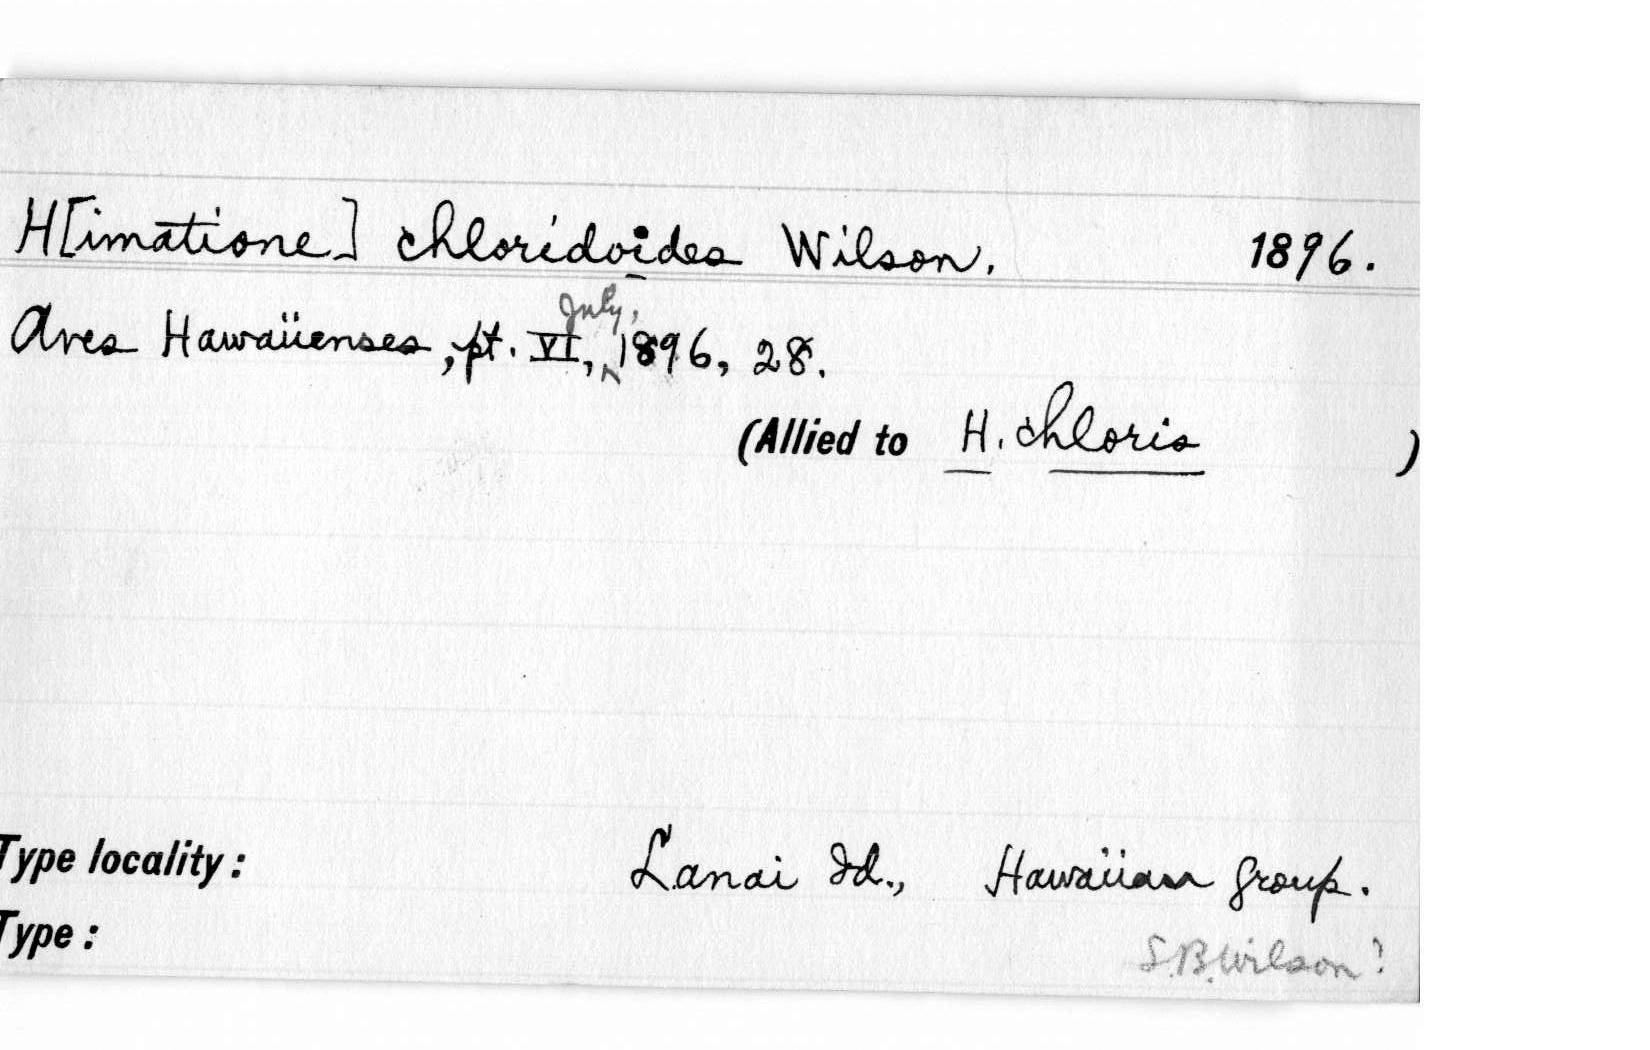 H[imatione] chloridoides Wilson. 1896.
Aves Hawaiienses, pt. VI, July, 1896, 28.
(Allied to H. chloris )
Type locality: Lanai Id., Hawaiian group.
Type: S.B. Wilson?